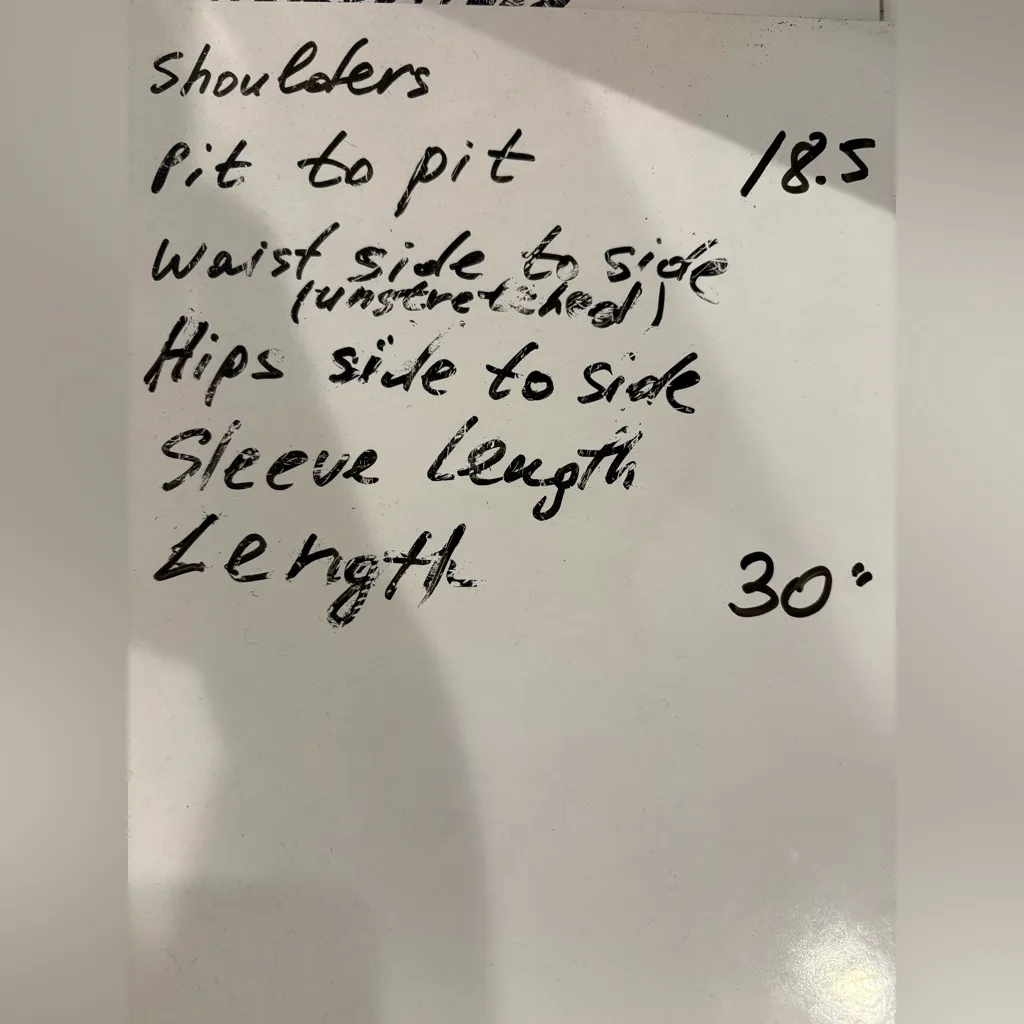 shoulders
Pit to pit 18.5
Waist side to side
(unstretched)
Hips side to side
Sleeve Length
Length 30"